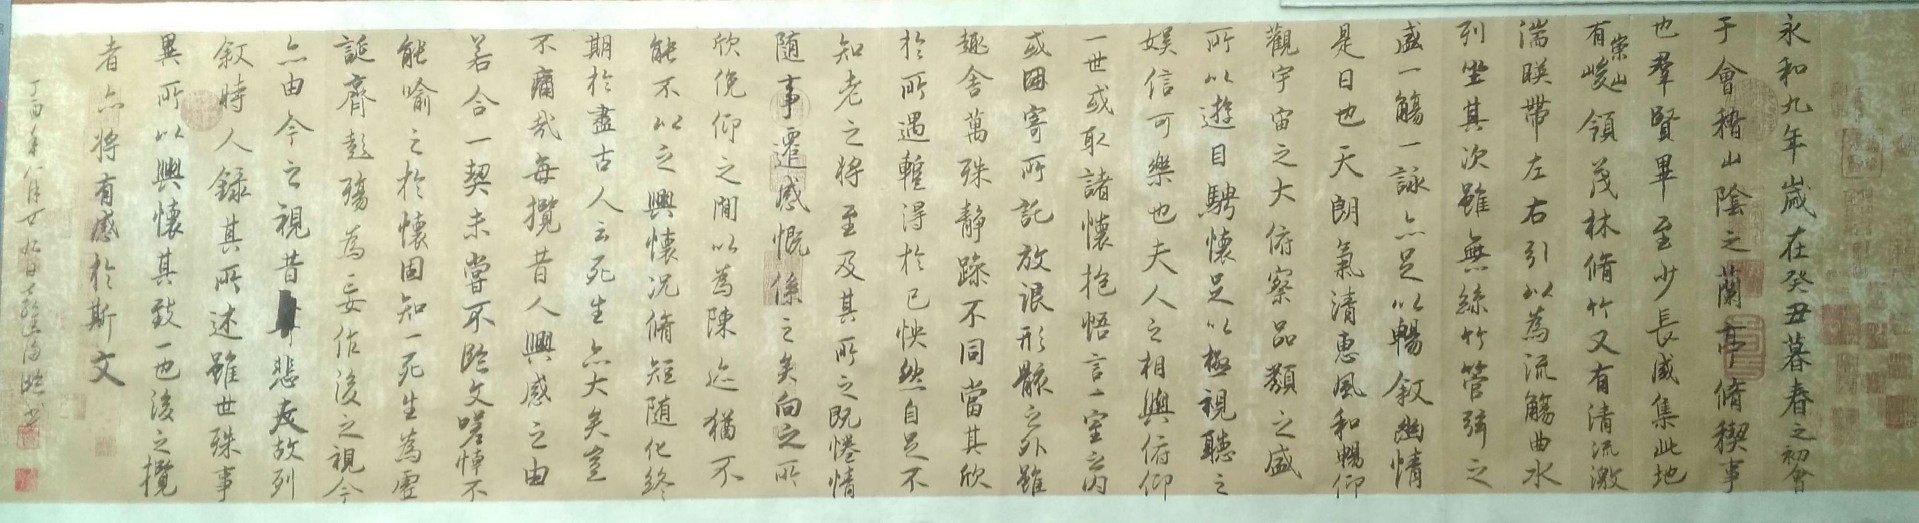 永和九年歲在癸丑暮春之初會
于會稽山陰之蘭亭脩稧事
也羣賢畢至少長咸集此地
有崇山峻領茂林脩竹又有清流激
湍暎帶左右引以為流觴曲水
列坐其次雖無絲竹管弦之
盛一觴一詠亦足以暢敘幽情
是日也天朗氣清惠風和暢仰
觀宇宙之大俯察品類之盛
所以遊目騁懷足以極視聽之
娛信可樂也夫人之相與俯仰
一世或取諸懷抱悟言一室之內
或因寄所託放浪形骸之外雖
趣舍萬殊靜躁不同當其欣
於所遇蹔得於己怏然自足不
知老之將至及其所之既惓情
隨事遷感慨係之矣向之所
欣俛仰之間以為陳迹猶不
能不以之興懷況脩短隨化終
期於盡古人云死生亦大矣豈
不痛哉每攬昔人興感之由
若合一契未嘗不臨文嗟悼不
能喻之於懷固知一死生為虛
誕齊彭殤為妄作後之視今
亦由今之視昔悲夫故列
敘時人錄其所述雖世殊事
異所以興懷其致一也後之攬
者亦將有感於斯文
丁酉年八月廿九日